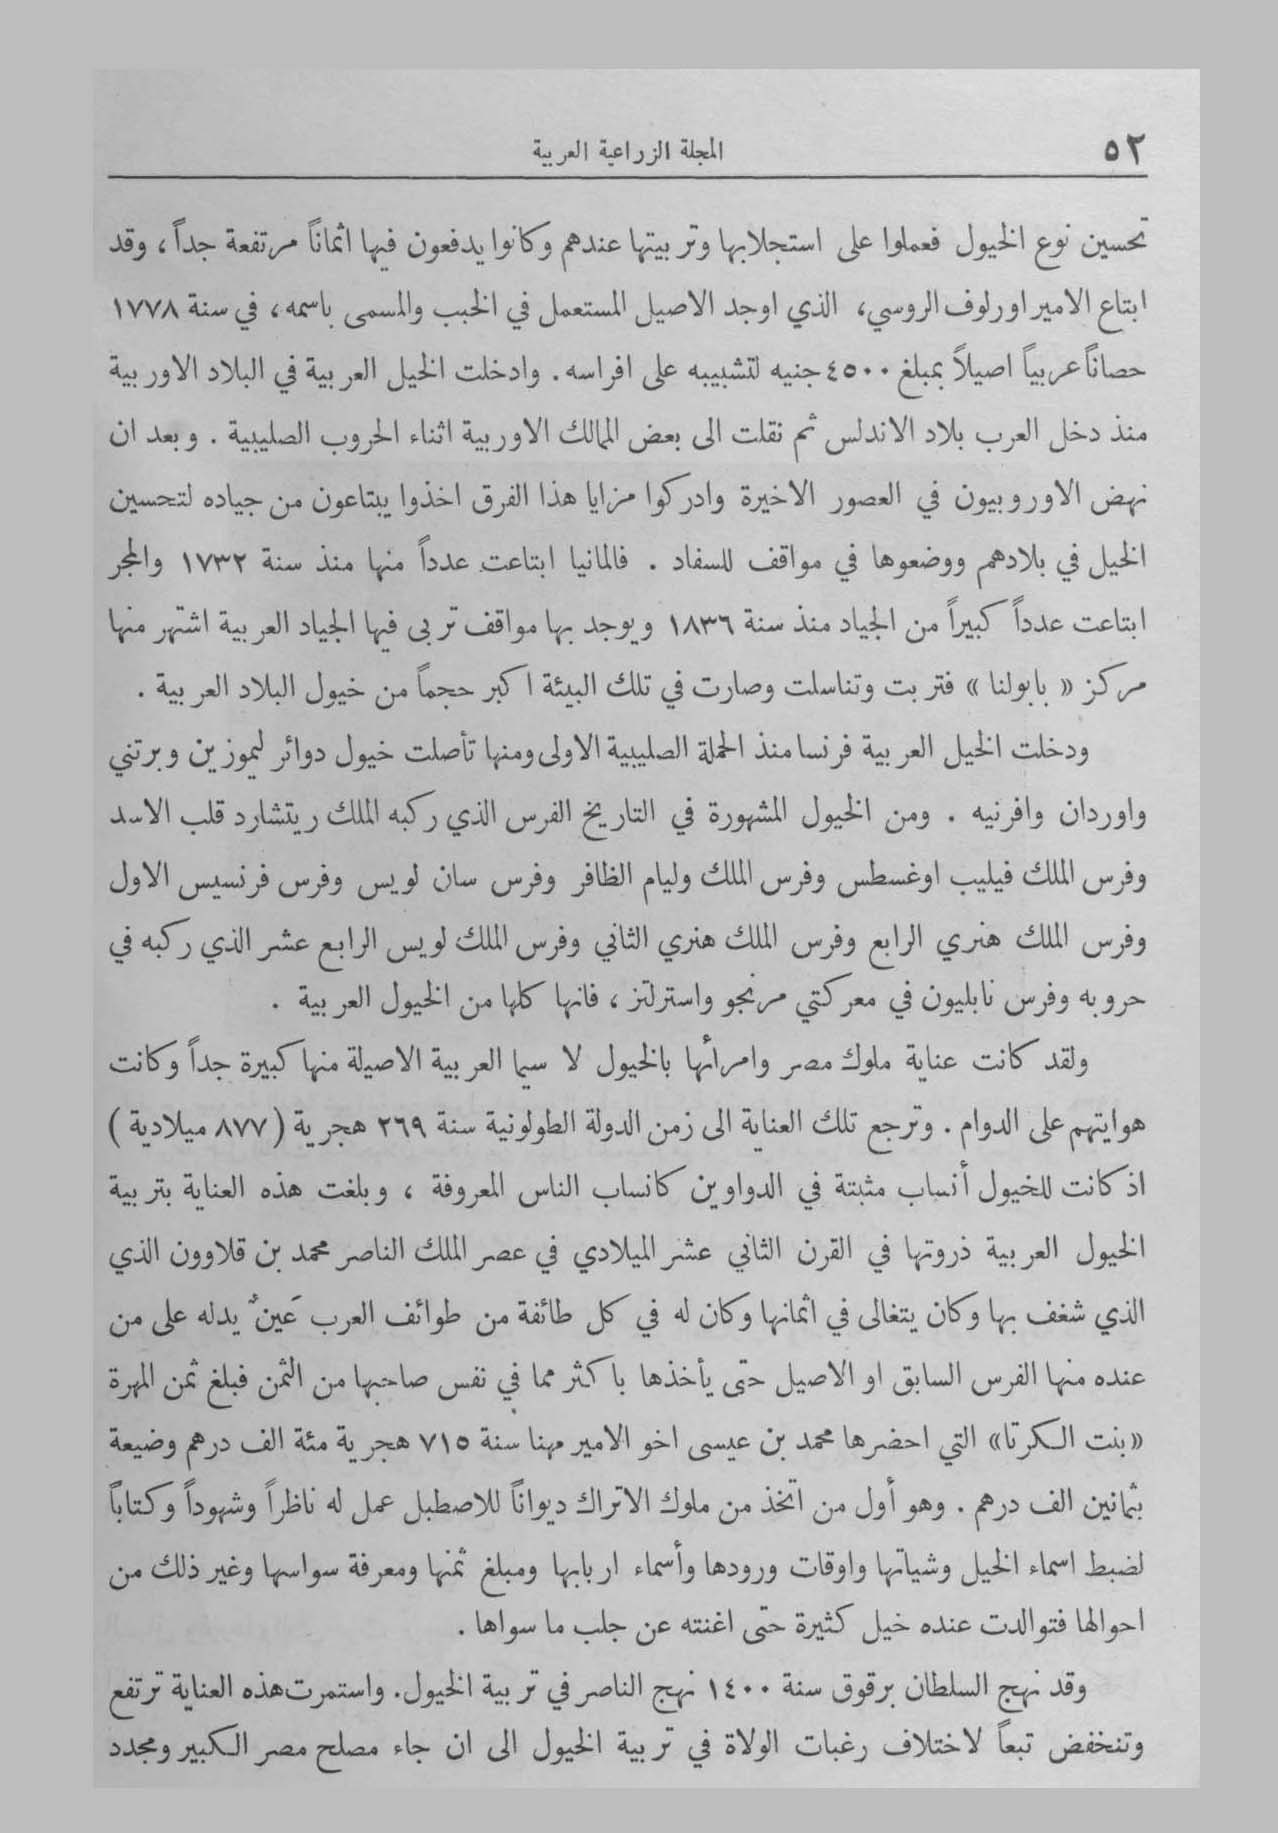 ٥٢
المجلة الزراعية العربية
تحسين نوع الخيول فعملوا على استجلابها وتربيتها عندهم وكانوا يدفعون فيها اثماناً مرتفعة جداً ، وقد
ابتاع الامير اورلوف الروسي، الذي اوجد الاصيل المستعمل في الخبب والمسمى باسمه ، في سنة ١٧٧٨
حصاناً عربياً اصيلاً بمبلغ ٤٥٠٠ جنيه لتشبيبه على افراسه. وادخلت الخيل العربية في البلاد الاوربية
منذ دخل العرب بلاد الاندلس ثم نقلت الى بعض الممالك الاوربية اثناء الحروب الصليبية . وبعد ان
نهض الاوروبيون في العصور الاخيرة وادركوا مزايا هذا الفرق اخذوا يبتاعون من جياده لتحسين
الخيل في بلادهم ووضعوها في مواقف للسفاد . فالمانيا ابتاعت عدداً منها منذ سنة ١٧٣٢ والمجر
ابتاعت عدداً كبيراً من الجياد منذ سنة ١٨٣٦ ويوجد بها مواقف تربى فيها الجياد العربية اشتهر منها
مركز « بابولنا » فتربت وتناسلت وصارت في تلك البيئة اكبر حجماً من خيول البلاد العربية .
ودخلت الخيل العربية فرنسا منذ الحملة الصليبية الاولى ومنها تأصلت خيول دوائر ليموزين وبرتني
واوردان وافرنيه . ومن الخيول المشهورة في التاريخ الفرس الذي ركبه الملك ريتشارد قلب الاسد
وفرس الملك فيليب اوغسطس وفرس الملك وليام الظافر وفرس سان لويس وفرس فرنسيس الاول
وفرس الملك هنري الرابع وفرس الملك هنري الثاني وفرس الملك لويس الرابع عشر الذي ركبه في
حروبه وفرس نابليون في معركتي مرنجو واسترلتز ، فانها كلها من الخيول العربية .
ولقد كانت عناية ملوك مصر وامرأئها بالخيول لا سيما العربية الاصيلة منها كبيرة جداً وكانت
هوايتهم على الدوام . وترجع تلك العناية الى زمن الدولة الطولونية سنة ٢٦٩ هجرية ( ٨٧٧ ميلادية )
اذ كانت للخيول أنساب مثبتة في الدواوين كانساب الناس المعروفة ، وبلغت هذه العناية بتربية
الخيول العربية ذروتها في القرن الثاني عشر الميلادي في عصر الملك الناصر محمد بن قلاوون الذي
الذي شغف بها وكان يتغالى في اثمانها وكان له في كل طائفة من طوائف العرب عَينٌ يدله على من
عنده منها الفرس السابق او الاصيل حتى يأخذها باكثر مما في نفس صاحبها من الثمن فبلغ ثمن المهرة
«بنت الكرتا» التي احضرها محمد بن عيسى اخو الامير مهنا سنة ٧١٥ هجرية مئة الف درهم وضيعة
بثمانين الف درهم . وهو أول من اتخذ من ملوك الاتراك ديواناً للاصطبل عمل له ناظراً وشهوداً وكتاباً
لضبط اسماء الخيل وشياتها واوقات ورودها وأسماء اربابها ومبلغ ثمنها ومعرفة سواسها وغير ذلك من
احوالها فتوالدت عنده خيل كثيرة حتى اغنته عن جلب ما سواها .
وقد نهج السلطان برقوق سنة ١٤٠٠ نهج الناصر في تربية الخيول. واستمرت هذه العناية ترتفع
وتنخفض تبعاً لاختلاف رغبات الولاة في تربية الخيول الى ان جاء مصلح مصر الكبير ومجدد